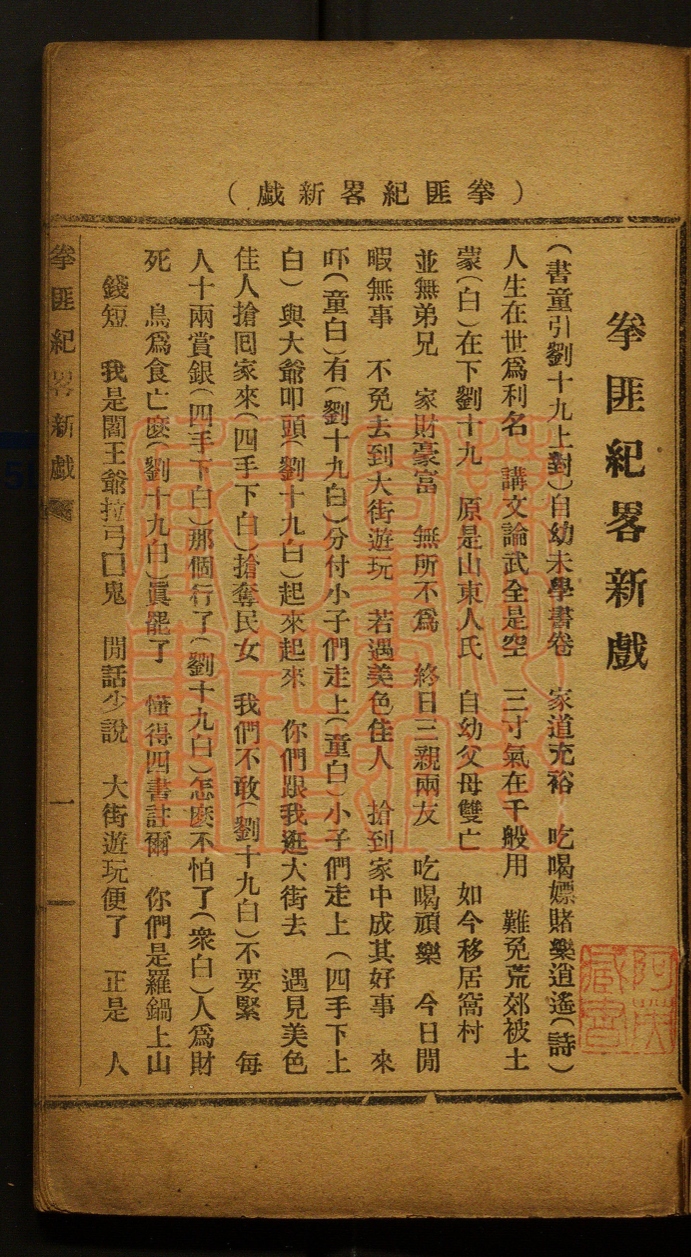 （拳匪紀畧新戲）
拳匪紀畧新戲
（書童引劉十九上對）自幼未學書卷　家道充裕　吃喝嫖賭樂逍遙（詩）
人生在世爲利名　講文論武全是空　三寸氣在千般用　難免荒郊被土
蒙（白）在下劉十九　原是山東人氏　自幼父母雙亡　如今移居窩村
並無弟兄　家財豪富　無所不爲　終日三親兩友　吃喝頑樂　今日閒
暇無事　不免去到大街遊玩　若遇美色佳人　搶到家中成其好事　來
吓（童白）有（劉十九白）分付小子們走上（童白）小子們走上（四手下上
白）與大爺叩頭（劉十九白）起來起來　你們跟我逛大街去　遇見美色
佳人搶囘家來（四手下白）搶奪民女　我們不敢（劉十九白）不要緊　每
人十兩賞銀（四手下白）那個行了（劉十九白）怎麽不怕了（衆白）人爲財
死　鳥爲食亡麽（劉十九白）眞罷了　懂得四書註爾　你們是羅鍋上山
錢短　我是閻王爺拉弓□鬼　閒話少說　大街遊玩便了　正是　人
拳匪紀畧新戲　一